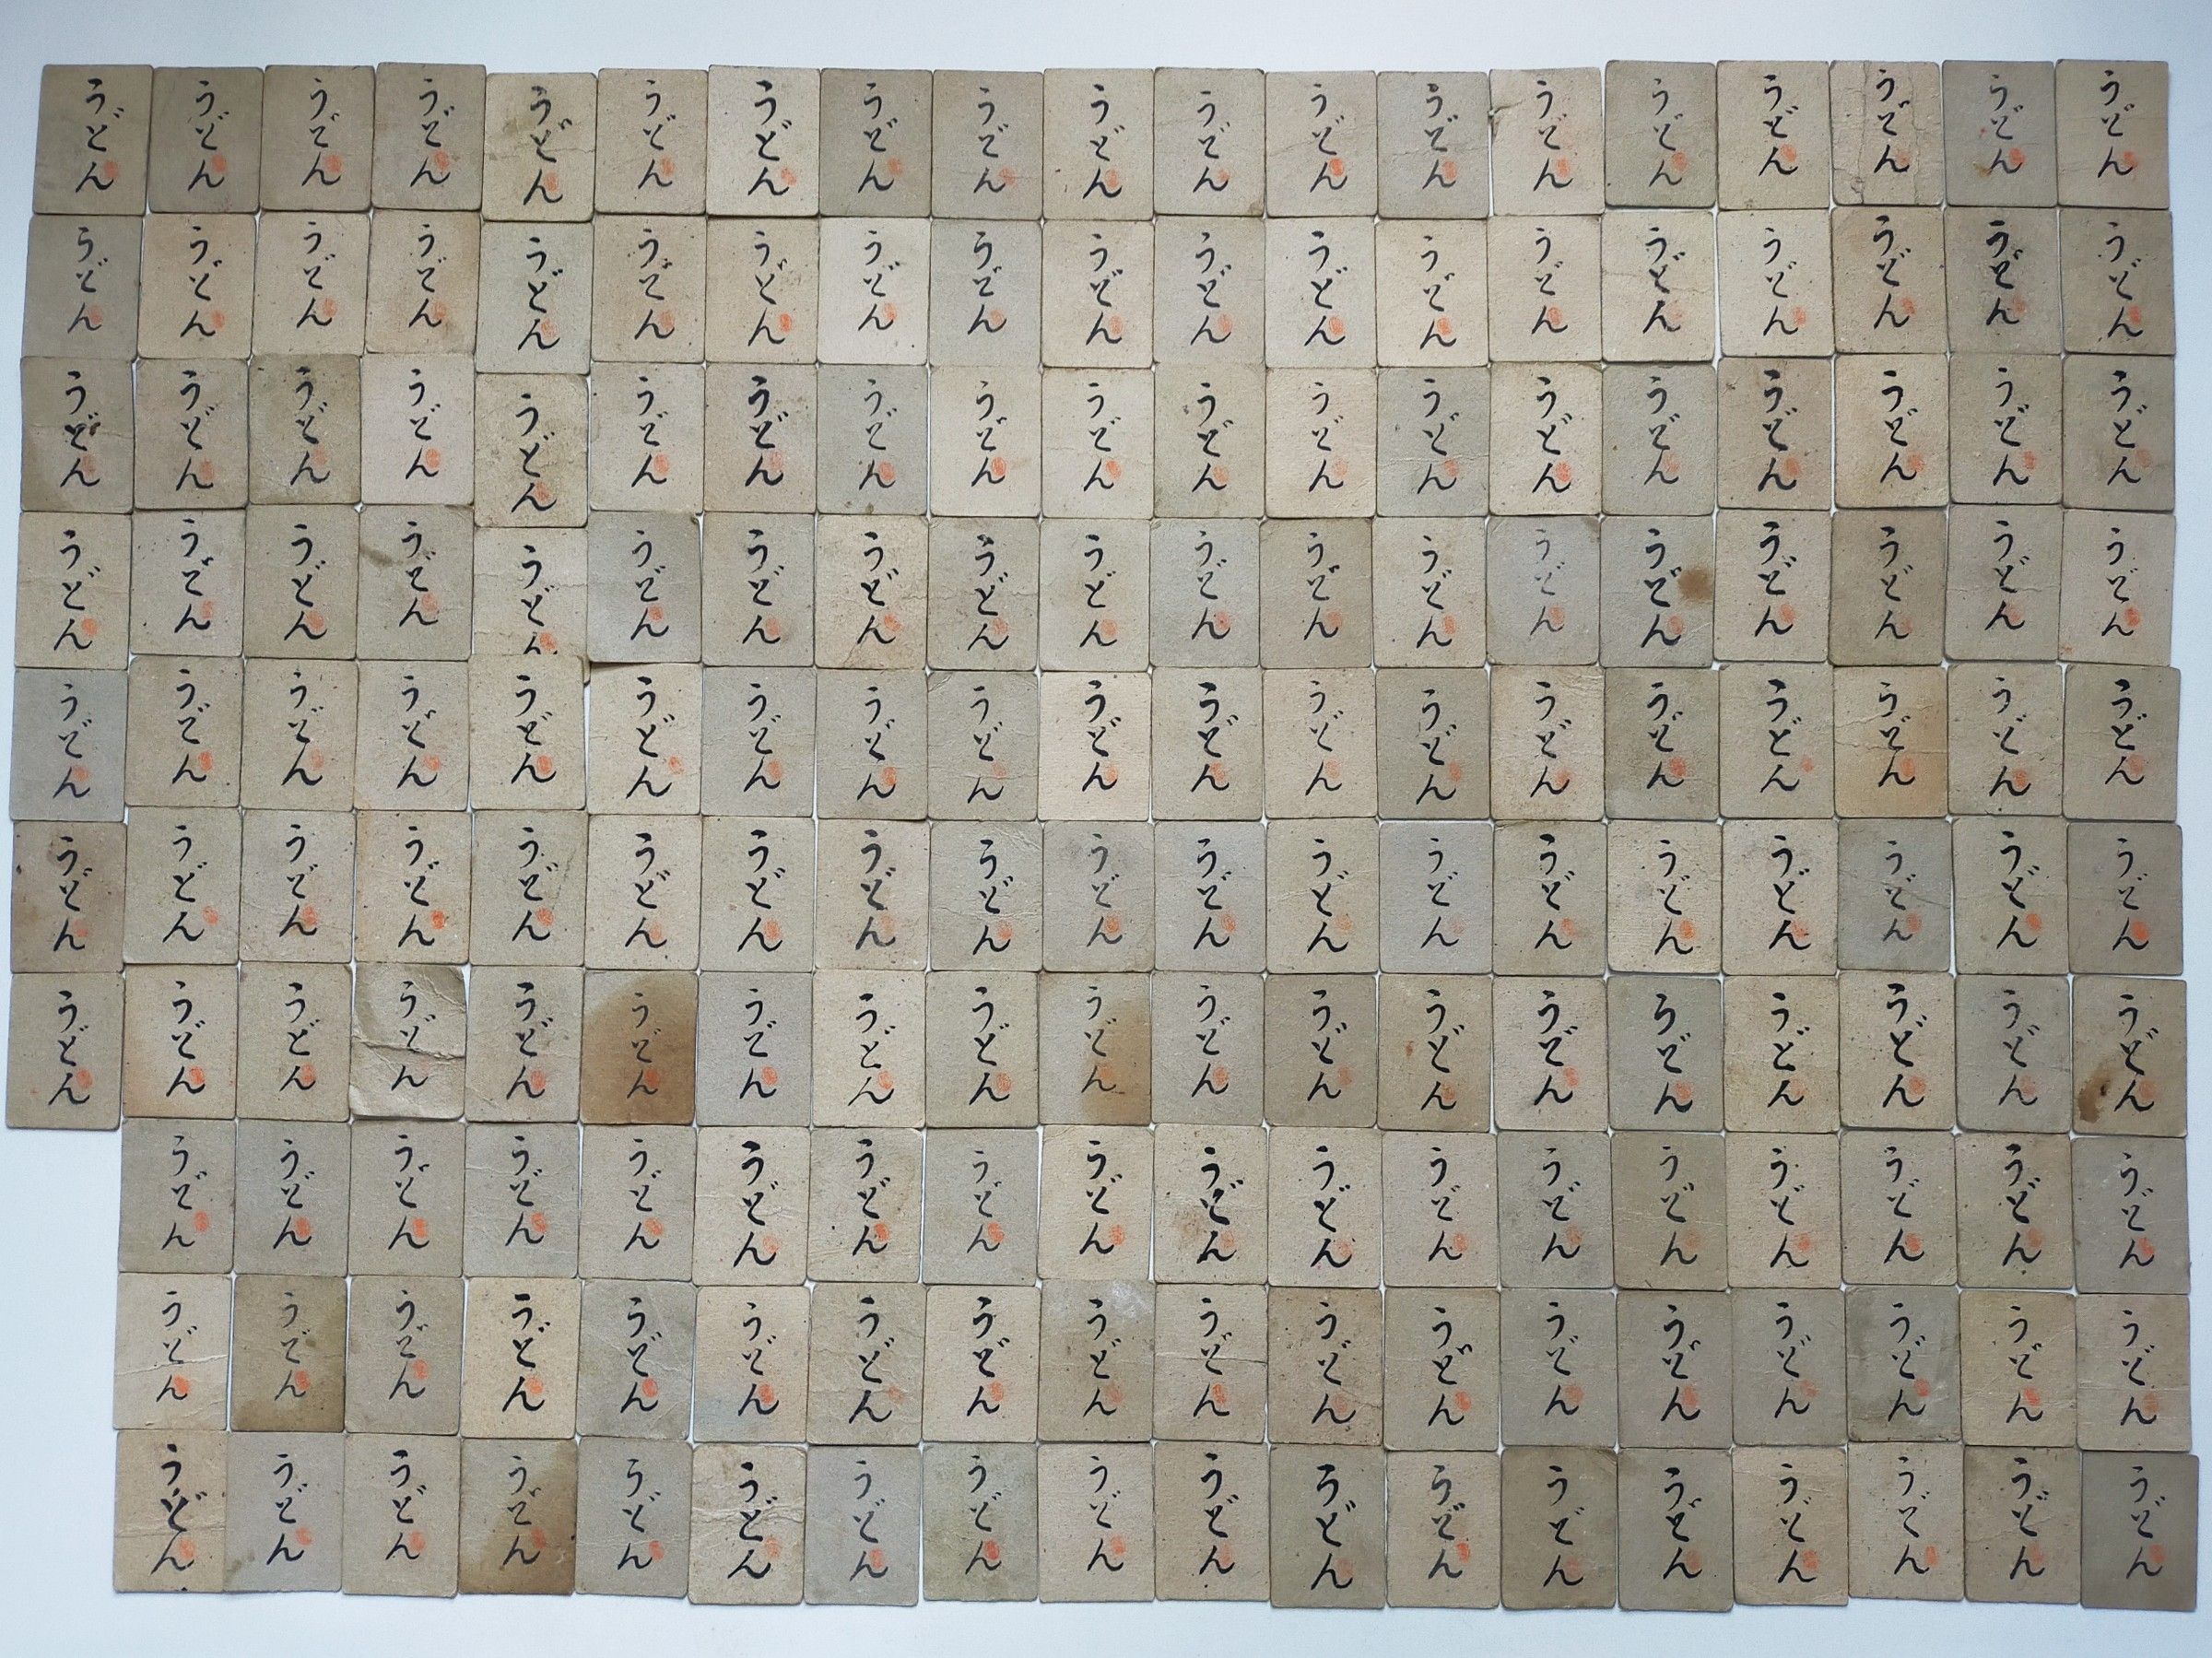 うどん うどん うどん うどん うどん うどん うどん うどん うどん うどん うどん うどん うどん うどん うどん うどん うどん うどん うどん
うどん うどん うどん うどん うどん うどん うどん うどん うどん うどん うどん うどん うどん うどん うどん うどん うどん うどん うどん
うどん うどん うどん うどん うどん うどん うどん うどん うどん うどん うどん うどん うどん うどん うどん うどん うどん うどん うどん
うどん うどん うどん うどん うどん うどん うどん うどん うどん うどん うどん うどん うどん うどん うどん うどん うどん うどん うどん
うどん うどん うどん うどん うどん うどん うどん うどん うどん うどん うどん うどん うどん うどん うどん うどん うどん うどん うどん
うどん うどん うどん うどん うどん うどん うどん うどん うどん うどん うどん うどん うどん うどん うどん うどん うどん うどん うどん
うどん うどん うどん うどん うどん うどん うどん うどん うどん うどん うどん うどん うどん うどん うどん うどん うどん うどん うどん
うどん うどん うどん うどん うどん うどん うどん うどん うどん うどん うどん うどん うどん うどん うどん うどん うどん うどん
うどん うどん うどん うどん うどん うどん うどん うどん うどん うどん うどん うどん うどん うどん うどん うどん うどん うどん
うどん うどん うどん うどん うどん うどん うどん うどん うどん うどん うどん うどん うどん うどん うどん うどん うどん うどん